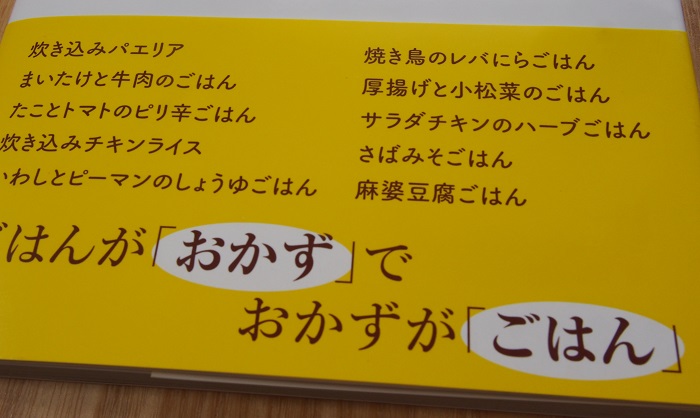 炊き込みパエリア
まいたけと牛肉のごはん
たことトマトのピリ辛ごはん
炊き込みチキンライス
いわしとピーマンのしょうゆごはん
焼き鳥のレバにらごはん
厚揚げと小松菜のごはん
サラダチキンのハーブごはん
さばみそごはん
麻婆豆腐ごはん
ごはんが「おかず」で
おかずが「ごはん」